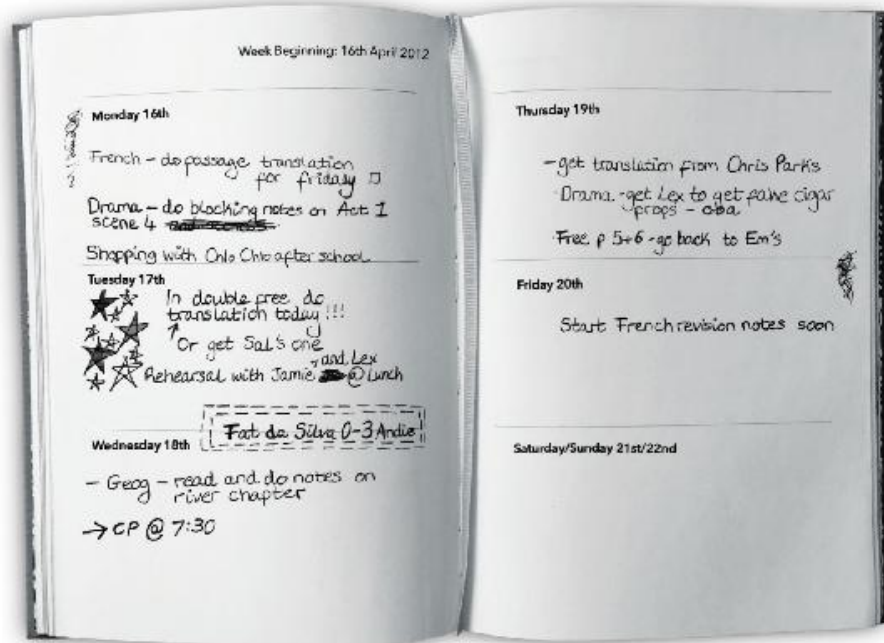 Week Beginning: 16th April 2012
Monday 16th
French – do passage translation
for friday
Drama – do blocking notes on Act 1
scene 4
Shopping with Chlo Chlo after school
Tuesday 17th
In double free do
translation today !!!
Or get Sal's one
and Lex
Rehearsal with Jamie @ Lunch
Fat da Silva 0-3 Andie
Wednesday 18th
- Geog – read and do notes on
river chapter
→ CP @ 7:30
Thursday 19th
- get translation from Chris Parks
Drama - get Lex to get fake cigar
props -
Free p 5+6 - go back to Em's
Friday 20th
Start French revision notes soon
Saturday/Sunday 21st/22nd